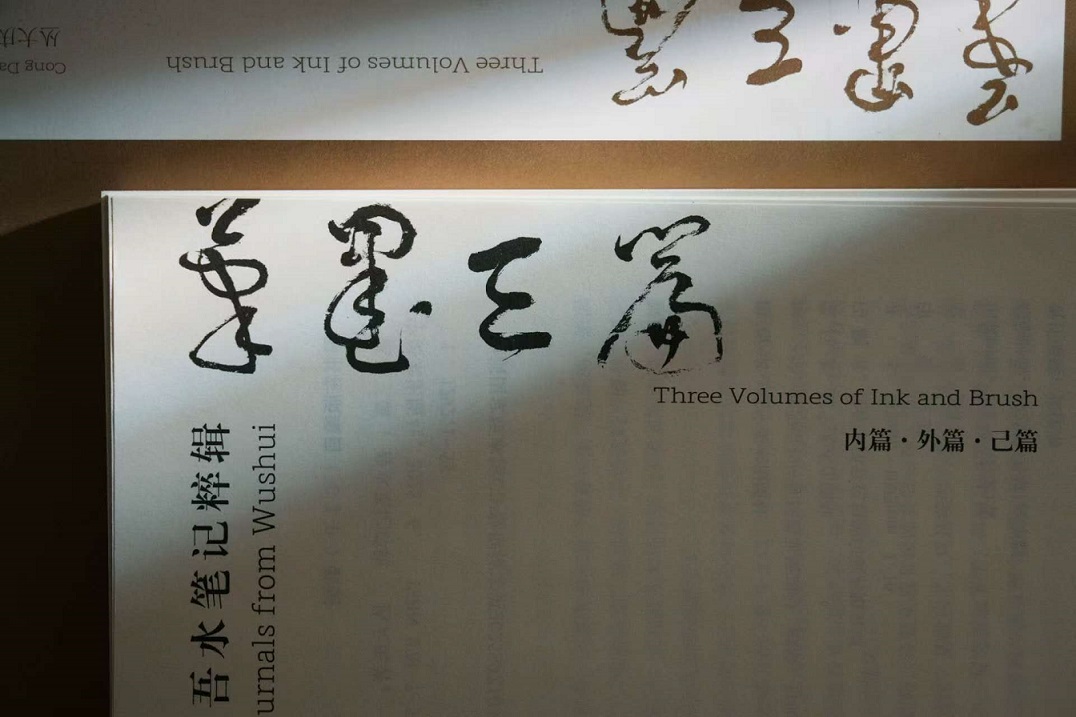 Three Volumes of Ink and Brush
笔墨三篇
丛大庆
Cong Da
笔墨三篇
Three Volumes of Ink and Brush
内篇・外篇・己篇
吾水笔记粹辑
urnals from Wushui